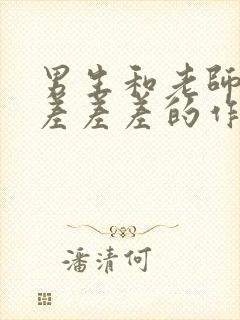 男生和老师
差差差的作
潘清何